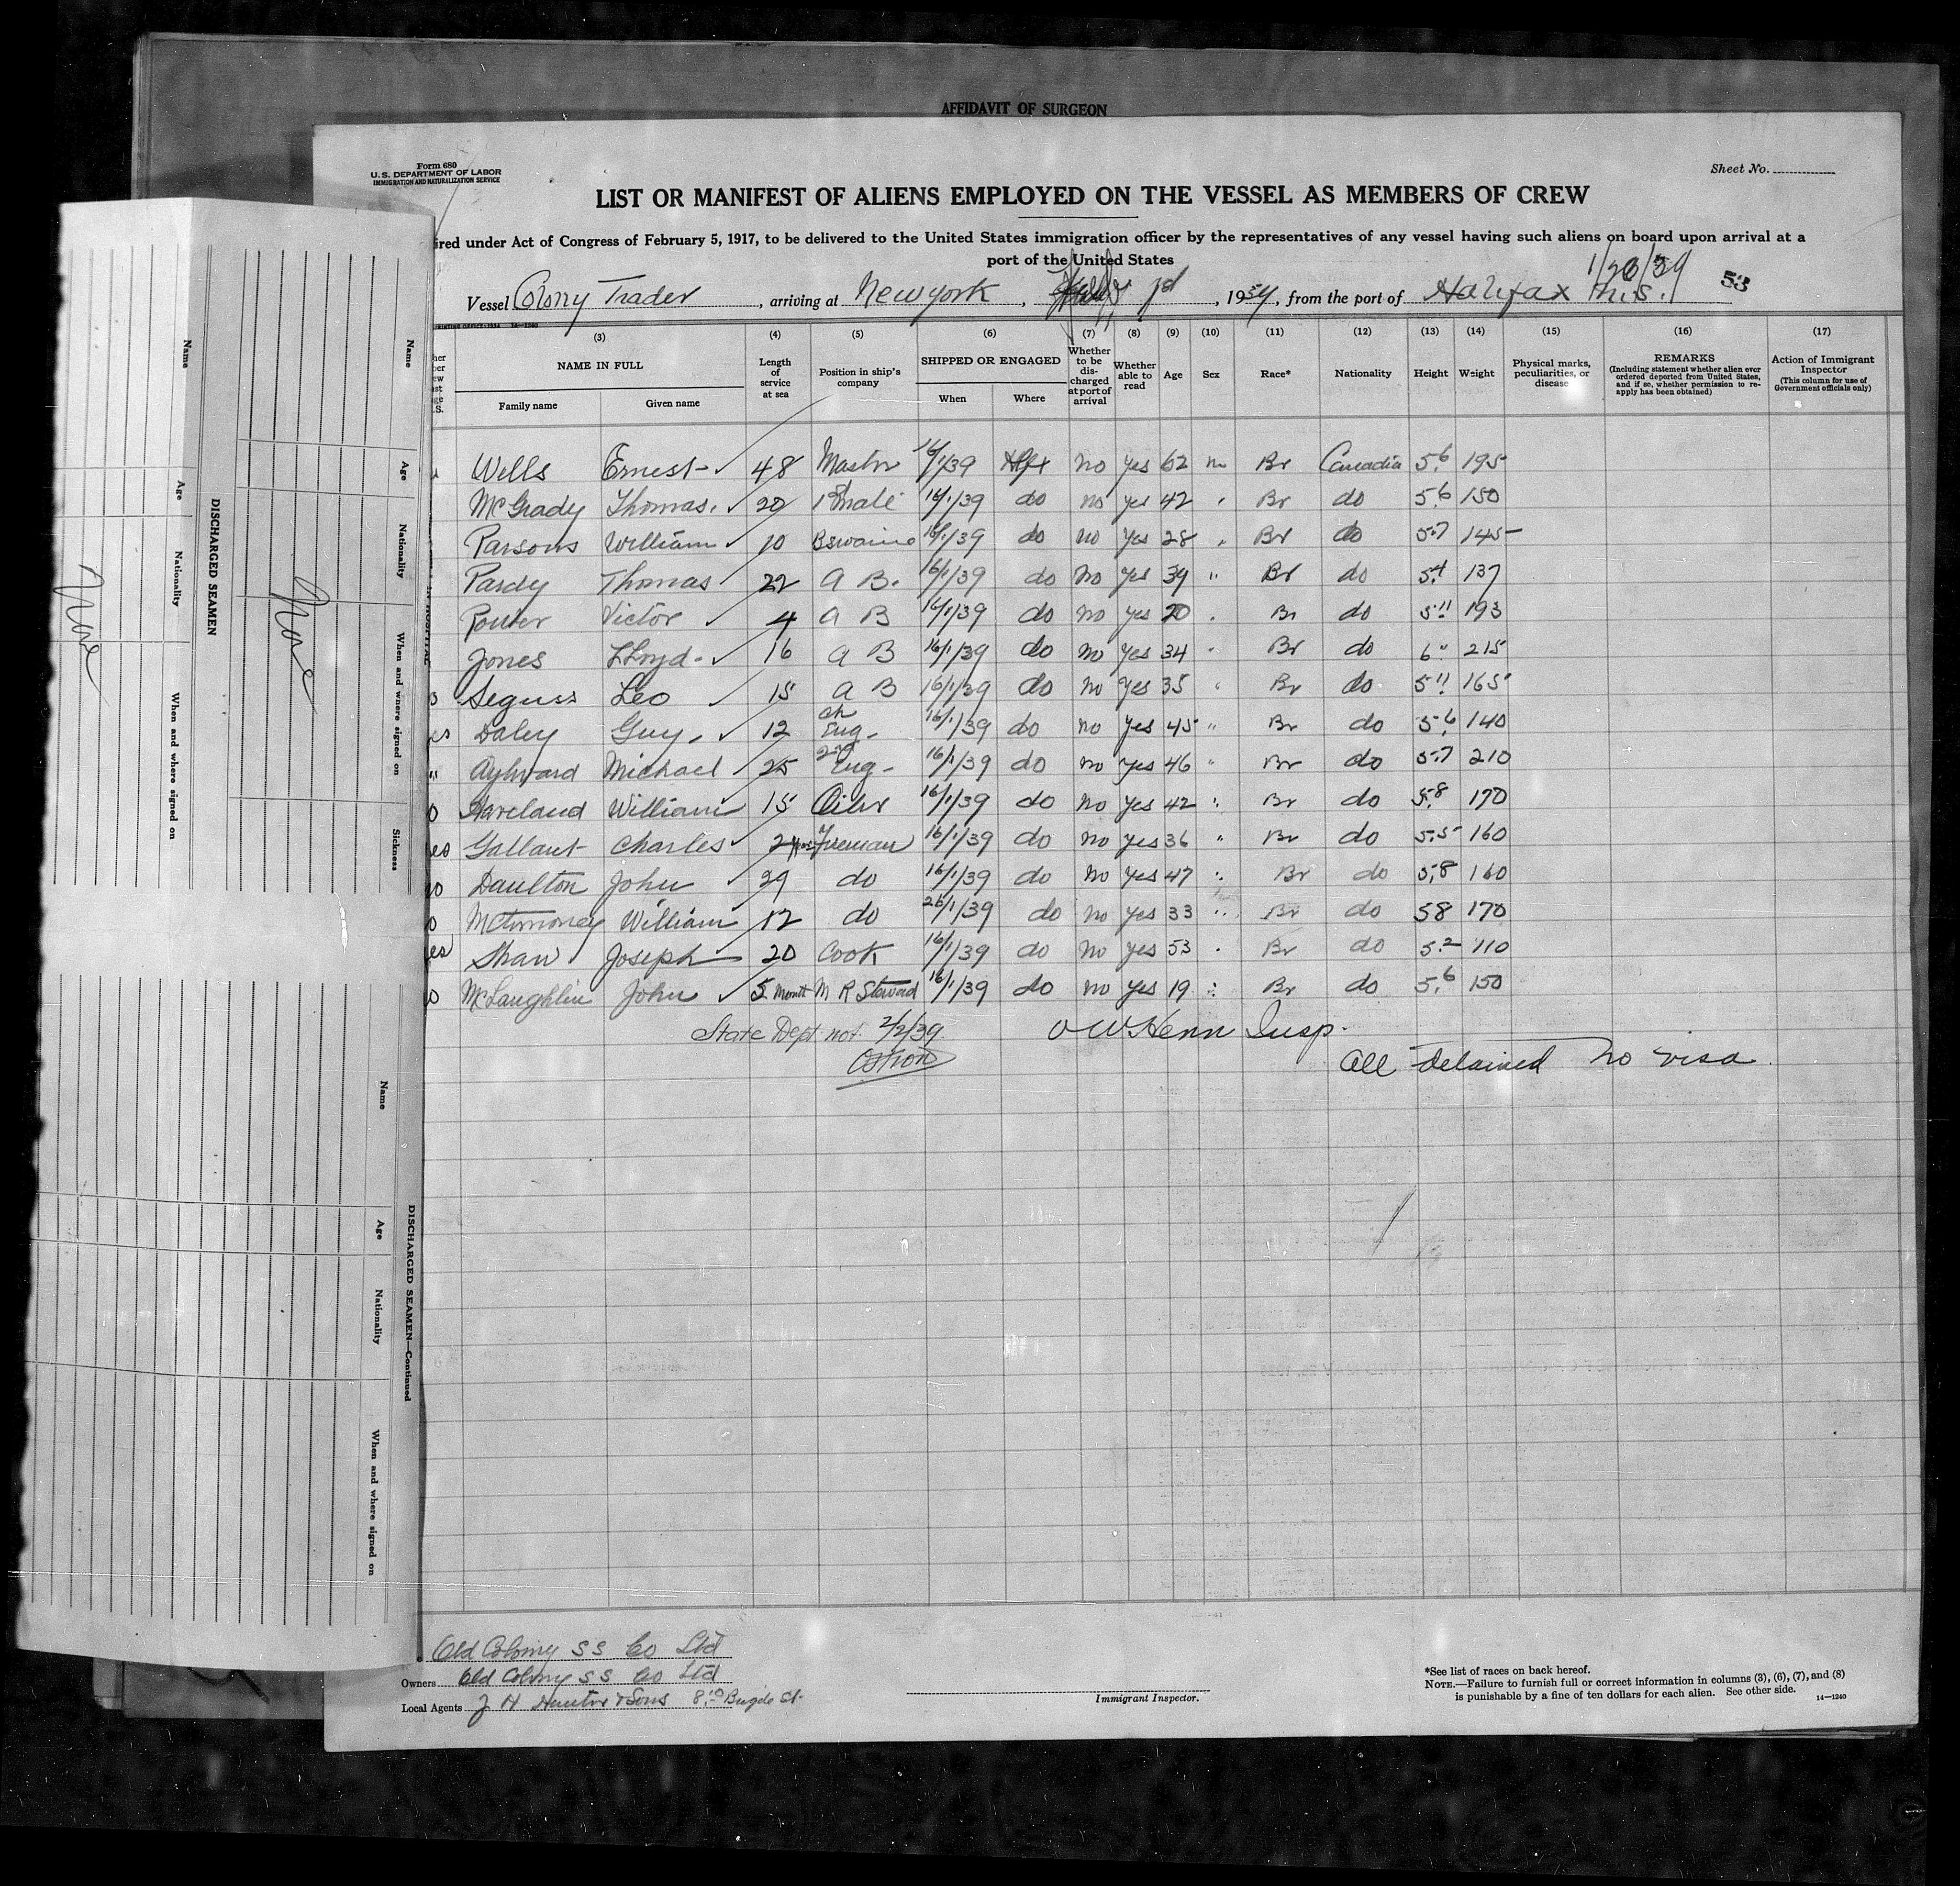 AFFIDAVIT OF SURGEON
Form 680
U. S. DEPARTMENT OF LABOR
IMMIGRATION AND NATURALIZATION SERVICE
Sheet No.
LIST OR MANIFEST OF ALIENS EMPLOYED ON THE VESSEL AS MEMBERS OF CREW
ired under Act of Congress of February 5, 1917, to be delivered to the United States immigration officer by the representatives of any vessel having such aliens on board upon arrival at a
port of the United States
1/26/39
Vessel Colony Trader, arriving at New york, 1st, 1939, from the port of Halifax N.S. 53
(3) (4) (5) (6) (7) (8) (9) (10) (11) (12) (13) (14) (15) (16) (17)
NAME IN FULL
Family name Given name
Length of service at sea
Position in ship's company
SHIPPED OR ENGAGED
When Where
Whether to be discharged at port of arrival
Whether able to read
Age
Sex
Race*
Nationality
Height
Weight
Physical marks, peculiarities, or disease
REMARKS
(Including statement whether alien ever ordered deported from United States, and if so, whether permission to reapply has been obtained)
Action of Immigrant Inspector
(This column for use of Government officials only)
Wells Ernest 48 Master 16/1/39 Hfx no yes 62 m Br Canadia 5.6 195
McGrady Thomas. 20 1 Mate 16/1/39 do no yes 42 " Br do 5.6 150
Parsons William 10 Bswaine 16/1/39 do no yes 28 " Br do 5.7 145
Pardy Thomas 22 A B. 16/1/39 do No yes 39 " Br do 5.4 137
Victor 4 A B 16/1/39 do No yes 20 " Br do 5.11 193
Jones Lloyd 16 A B 16/1/39 do No yes 34 " Br do 6" 215
Leo 15 A B 16/1/39 do No yes 35 " Br do 5.11 165
Daley Guy 12 ch Eng 16/1/39 do no yes 45 " Br do 5.6 140
Aylward Michael 25 2nd Eng 16/1/39 do no yes 46 " Br do 5.7 210
Haveland William 15 Oiler 16/1/39 do No yes 42 " Br do 5.8 170
Gallant Charles Fireman 16/1/39 do No yes 36 " Br do 5.5 160
Daulton John 29 do 16/1/39 do No yes 47 " Br do 5.8 160
William 12 do 26/1/39 do No yes 33 " Br do 58 170
Shaw Joseph 20 Cook 16/1/39 do No yes 53 " Br do 5.2 110
McLaughlin John 5 Month M R Steward 16/1/39 do no yes 19 " Br do 5.6 150
State Dept not 2/2/39 Insp.
All detained no visa
Old Colony S S Co Ltd
Owners Old Colony S S Co Ltd
Local Agents J H & Sons
Immigrant Inspector.
*See list of races on back hereof.
NOTE.—Failure to furnish full or correct information in columns (3), (6), (7), and (8)
is punishable by a fine of ten dollars for each alien. See other side. 14—1240
DISCHARGED SEAMEN
Name Age Nationality When and where signed on
None
Name Age Nationality When and where signed on Sickness
None
DISCHARGED SEAMEN—Continued
Name Age Nationality When and where signed on